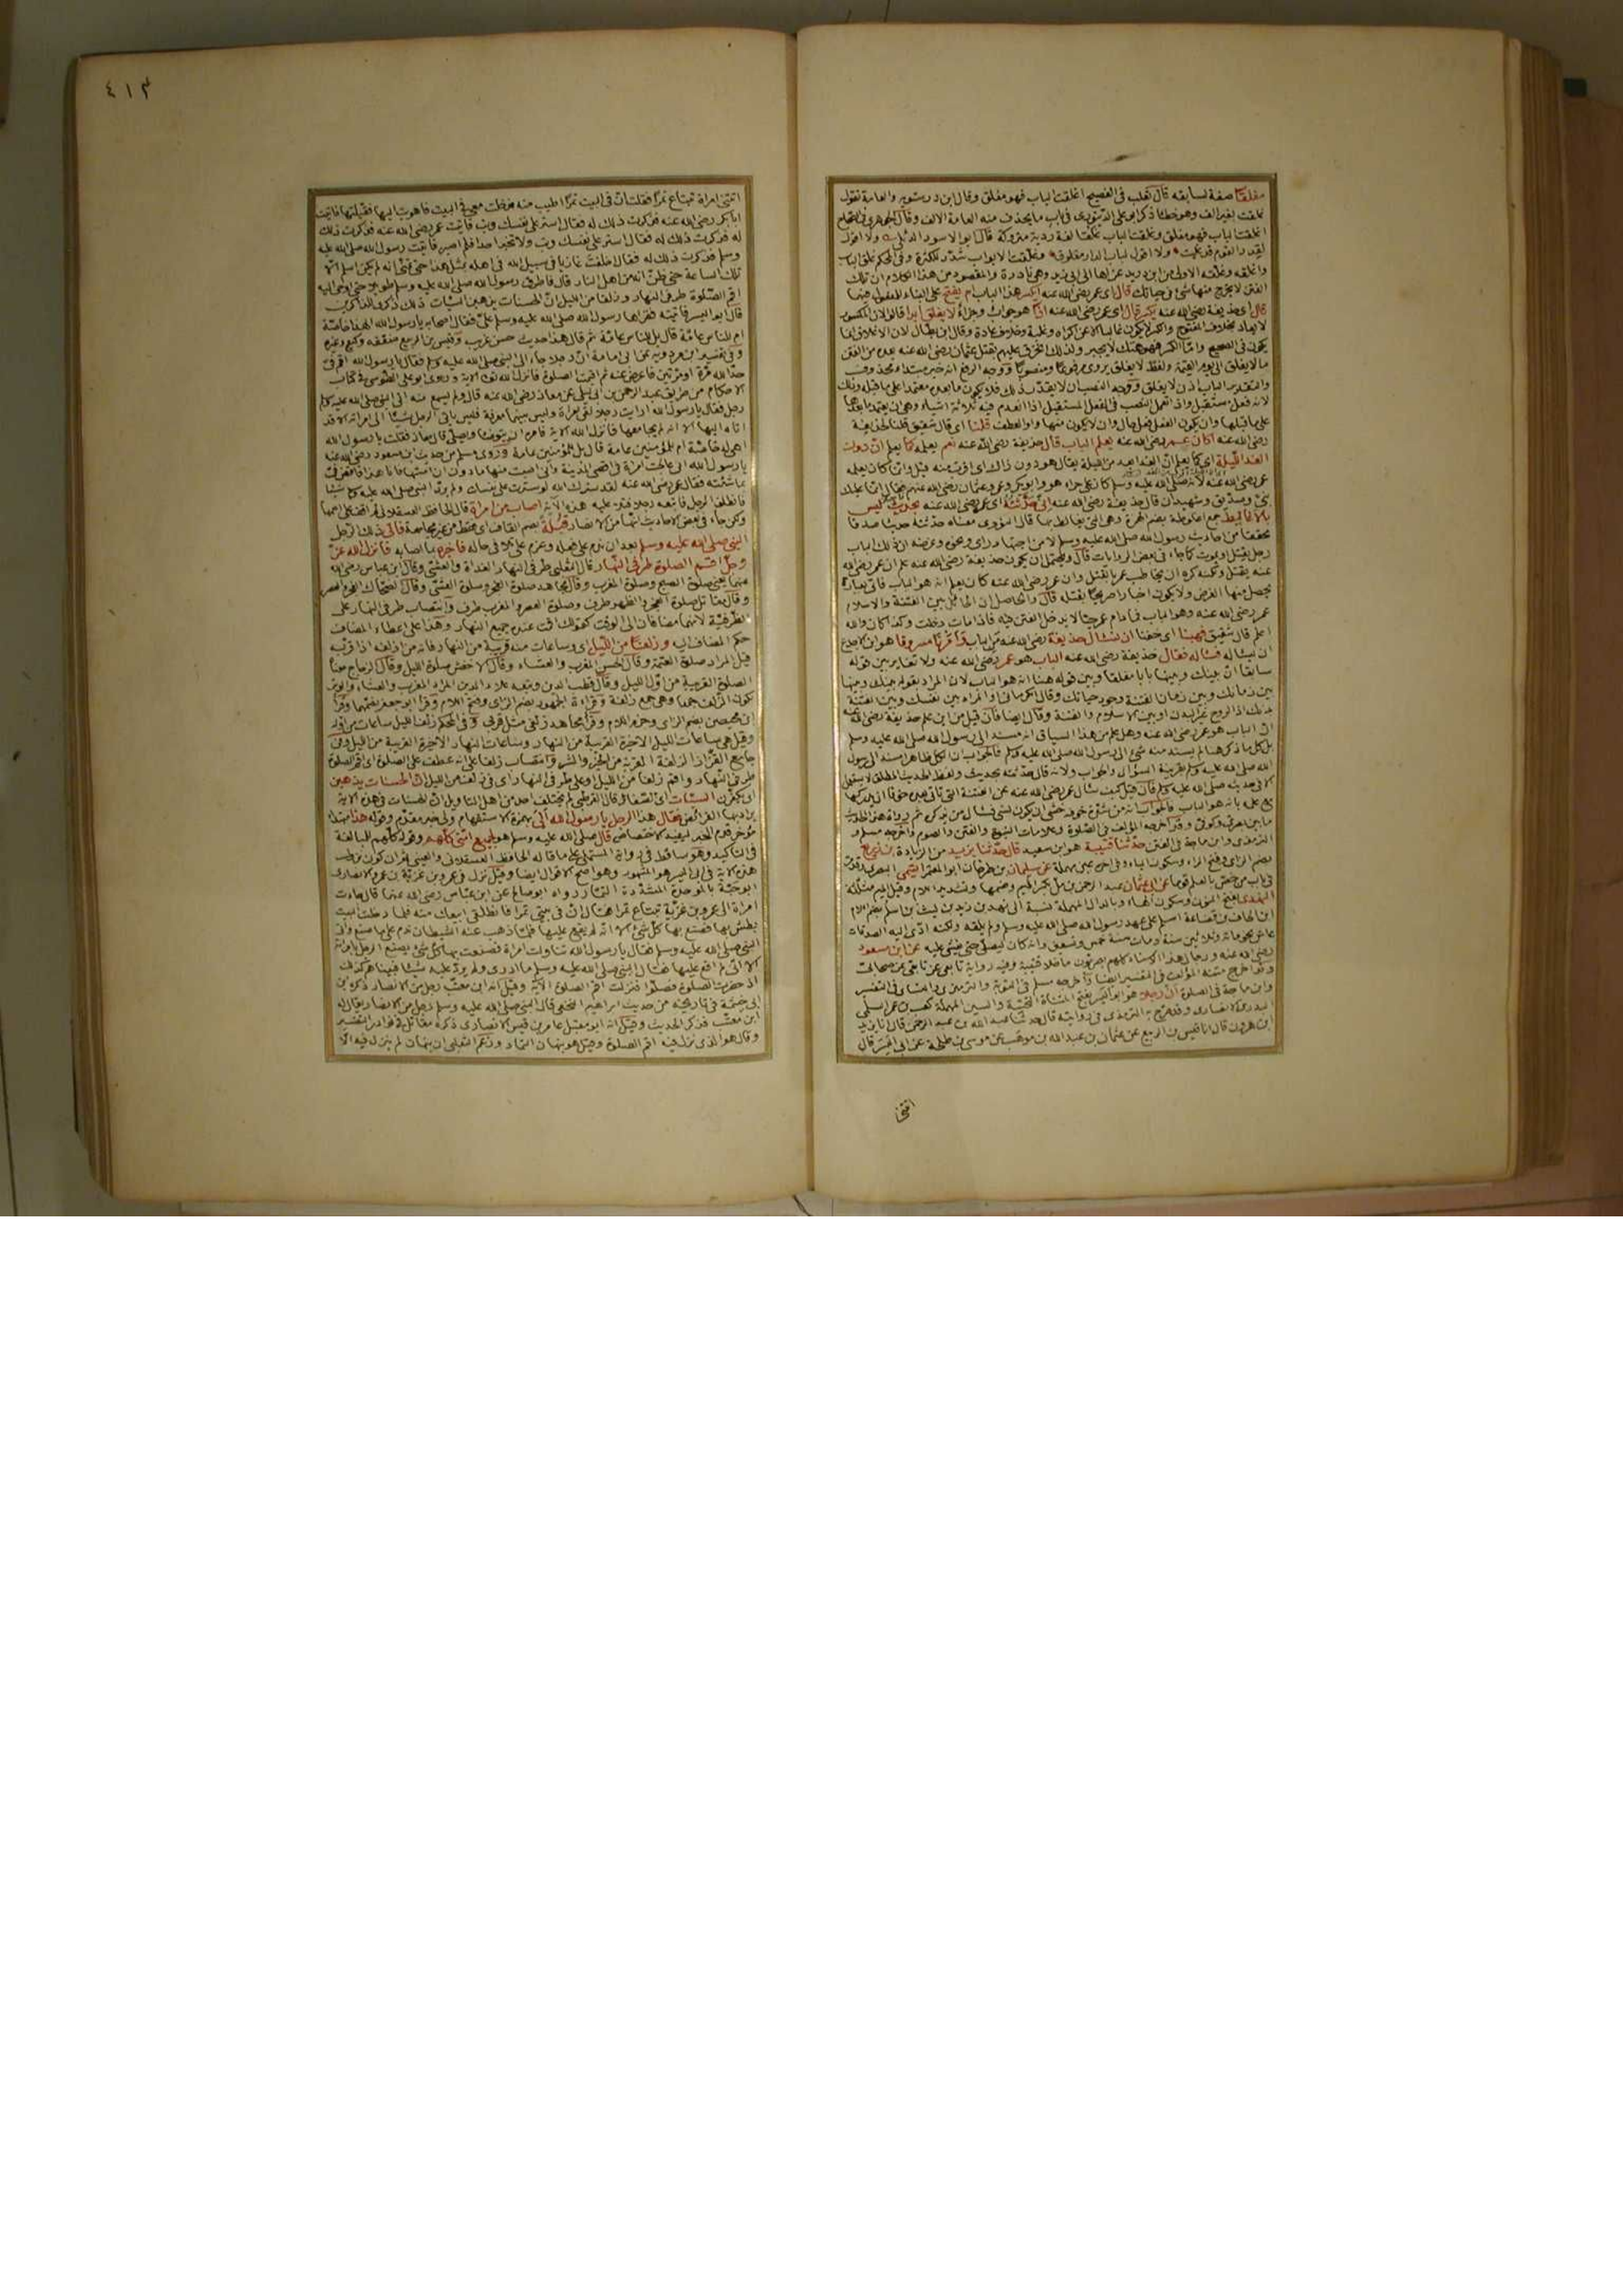 مغلقا صفة لسابقه قال ثعلب فى الفصيح اغلقت الباب فهو مغلق وقال ابن درستويه والعامة تقول
غلقت بغير الف وهو خطأ ذكر ابو على الدينورى فى باب ما يحذف منه العامة الالف وقال الجوهرى
اغلقت الباب فهو مغلق وغلقت الباب غلقا لغة ردية متروكة قال ابو الاسود الدئلى ولا اقول
لقدر القوم قد غليت ولا اقول لباب الدار مغلوق وغلقت الابواب شدد للكثرة وفى المحكم غلق الباب
واغلقه وغلقه الاولى من ابن دريد عزاها الى ابى زيد وهى نادرة والمقصود من هذا الكلام ان تلك
الفتن لا يخرج منها شئ فى حياتك قال اى عمر رضى الله عنه ايكسر هذا الباب ام يفتح على البناء للمفعول فيهما
قال اى حذيفة رضى الله عنه يكسر قال اى عمر رضى الله عنه اذا هو جواب وجزاء لا يغلق ابدا قالوا لان المكسور
لا يعاد بخلاف المفتوح والكسر لا يكون غالبا الا عن اكراه وغلبة وخلاف عادة وقال ابن بطال لان الاغلاق انما
يكون فى الصحيح واما الكسر فهو هتك لا يجبر ولذلك انخرق عليهم بقتل عثمان رضى الله عنه بعده من الفتن
ما لا يغلق الى يوم القيمة ولفظ لا يغلق يروى مرفوعا ومنصوبا ووجه الرفع انه خبر مبتدأ محذوف
والتقدير الباب اذن لا يغلق ووجه النصب ان لا يقدر ذلك فلا يكون ما بعده معتمدا على ما قبله وذلك
لانه فعل مستقبل واذا تعمل النصب فى الفعل المستقبل اذا انعدم فيه ثلاثة اشياء وهى ان يعتمد ما بعدها
على ما قبلها وان يكون الفعل فعل حال وان لا يكون منها واو العطف قلنا اى قال شقيق قلنا لحذيفة
رضى الله عنه اكان عمر رضى الله عنه يعلم الباب قال حذيفة رضى الله عنه نعم يعلمه كما يعلم ان دون
الغد الليلة اى كما يعلم ان الغد ابعد من الليلة يقال هو دون ذلك اى اقرب منه قيل وانما كان يعلمه
عمر رضى الله عنه لانه صلى الله عليه وسلم كان على حراء هو وابو بكر وعمر وعثمان رضى الله عنهم فقال انما عليك
نبى وصديق وشهيدان قال حذيفة رضى الله عنه انى حدثته اى عمر رضى الله عنه بحديث ليس
بالاغاليط جمع اغلوطة بضم الهمزة وهى التى يغالط بها قال النووى معناه حدثته حديثا صدقا
محققا من احاديث رسول الله صلى الله عليه وسلم لا من اجتهاد راى ونحوه وغرضه ان ذلك الباب
رجل يقتل او يموت كما جاء فى بعض الروايات قال ويحتمل ان يكون حذيفة رضى الله عنه علم ان عمر رضى الله
عنه يقتل ولكنه كره ان يخاطب عمر بالقتل وان عمر رضى الله عنه كان يعلم انه هو الباب فاتى بعبارة
يحصل منها الغرض ولا يكون اخبارا صريحا بقتله قال والحاصل ان الحائل بين الفتنة والاسلام
عمر رضى الله عنه وهو الباب فما دام عمر حيا لا يدخل الفتن فيه فاذا مات دخلت وكذا كان والله
اعلم قال شقيق فهبنا اى خفنا ان نسأل حذيفة رضى الله عنه من الباب فامرنا مسروقا هو ابن الاجدع
ان يسأله فسأله فقال حذيفة رضى الله عنه الباب هو عمر رضى الله عنه ولا تغاير بين قوله
سابقا ان بينك وبينها بابا مغلقا وبين قوله هنا انه هو الباب لان المراد بقوله بينك وبينها
بين زمانك وبين زمان الفتنة وجود حياتك وقال الكرمانى او المراد بين نفسك وبين الفتنة
بدنك اذ الروح غير البدن او بين الاسلام والفتنة وقال ايضا فان قيل من اين علم حذيفة رضى الله عنه
ان الباب هو عمر رضى الله عنه وهل علم من هذا السياق انه مسند الى رسول الله صلى الله عليه وسلم
بل كل ما ذكر هنا لم يسند منه شئ الى رسول الله صلى الله عليه وسلم فالجواب ان الكل ظاهرا مسند الى رسول
الله صلى الله عليه وسلم بقرينة السؤال والجواب ولانه قال حدثته بحديث ولفظ الحديث المطلق لا يستعمل
الا فى حديثه صلى الله عليه وسلم فان قيل كيف سأل عمر رضى الله عنه عن الفتنة التى تأتى بعده خوفا ان يدركها
مع علمه بانه هو الباب فالجواب انه من شدة خوفه خشى ان يكون نسى فسأل من يذكره ثم رواة هذا الحديث
ما بين بصرى وكوفى وقد اخرجه المؤلف فى الصلوة وعلامات النبوة والفتن والصوم واخرجه مسلم و
الترمذى وابن ماجة فى الفتن حدثنا قتيبة هو ابن سعيد قال حدثنا يزيد من الزيادة بن زريع
بضم الزاى وفتح الراء وسكون الياء وفى اخره عين مهملة عن سليمان بن طرخان ابو المعتمر التيمى البصرى وقد مر
فى باب من خص بالعلم قوما عن ابى عثمان عبد الرحمن بن مل بكسر الميم وضمها وتشديد اللام وقيل الميم مثلثة
النهدى بفتح النون وسكون الهاء وبالدال المهملة نسبة الى نهد بن زيد بن ليث بن اسلم بضم اللام
ابن الحاف بن قضاعة اسلم على عهد رسول الله صلى الله عليه وسلم ولم يلقه ولكنه ادى اليه الصدقات
عاش نحو مائة وثلاثين سنة ومات سنة خمس وتسعين وانه كان ليصلى حتى يغشى عليه عن ابن مسعود
رضى الله عنه ورجال هذا الاسناد كلهم بصريون ما خلا قتيبة وفيه رواية تابعى عن تابعى عن صحابى
وقد اخرج متنه المؤلف فى التفسير ايضا واخرجه مسلم فى التوبة والترمذى والنسائى فى التفسير
وابن ماجة فى الصلوة ان رجلا هو ابو اليسر بفتح المثناة التحتية والسين المهملة كعب بن عمرو السلمى
البدرى الانصارى وقد صرح به الترمذى فى روايته قال حدثنا عبد الله بن عبد الرحمن قال انا يزيد
ابن هرون قال انا قيس بن الربيع عن عثمان بن عبد الله بن موهب عن موسى بن طلحة عن ابى اليسر قال
اتتنى
٤١٣
اتتنى امرأة تبتاع تمرا فقلت ان فى البيت تمرا اطيب منه فدخلت معى فى البيت فاهويت اليها فقبلتها فاتيت
ابا بكر رضى الله عنه فذكرت ذلك له فقال استر على نفسك وتب فاتيت عمر رضى الله عنه فذكرت ذلك
له فذكرت ذلك له فقال استر على نفسك وتب ولا تخبر احدا فلم اصبر فاتيت رسول الله صلى الله عليه
وسلم فذكرت ذلك له فقال اخلفت غازيا فى سبيل الله فى اهله بمثل هذا حتى تمنى انه لم يكن اسلم الا
تلك الساعة حتى ظن انه من اهل النار قال فاطرق رسول الله صلى الله عليه وسلم طويلا حتى اوحى اليه
اقم الصلوة طرفى النهار وزلفا من الليل ان الحسنات يذهبن السيئات ذلك ذكرى للذاكرين
قال ابو اليسر فاتيته فقرأها رسول الله صلى الله عليه وسلم على فقال اصحابه يا رسول الله الهذا خاصة
ام للناس عامة قال بل للناس عامة ثم قال هذا حديث حسن غريب وقيس بن الربيع ضعفه وكيع وغيره
وفى تفسير ابن مردويه عن ابى امامة ان رجلا جاء الى النبى صلى الله عليه وسلم فقال يا رسول الله اقم فى
حد الله مرة او مرتين فاعرض عنه ثم اقيمت الصلوة فانزل الله تعالى الاية وروى ابو على الطوسى فى كتاب
الاحكام من طريق عبد الرحمن بن ابى ليلى عن معاذ رضى الله عنه قال ولم يسمع منه اتى النبى صلى الله عليه وسلم
رجل فقال يا رسول الله ارايت رجلا لقى امرأة وليس بينهما معرفة فليس ياتى الرجل شيئا الى امراته الا قد
اتاه اليها الا انه لم يجامعها فانزل الله الاية فامره ان يتوضأ ويصلى قال معاذ فقلت يا رسول الله
اهى له خاصة ام للمؤمنين عامة قال بل للمؤمنين عامة وروى مسلم من حديث ابن مسعود رضى الله عنه
يا رسول الله انى عالجت امرأة فى اقصى المدينة وانى اصبت منها ما دون ان امسها فانا هذا فاقض فى
ما شئت فقال عمر رضى الله عنه لقد سترك الله لو سترت على نفسك ولم يرد النبى صلى الله عليه وسلم شيئا
فانطلق الرجل فاتبعه رجلا فتلا عليه هذه الآية اصاب من امرأة قال الحافظ العسقلانى لم اقف على اسمها
ولكن جاء فى بعض الاحاديث انها من الانصار قبلة بضم القاف اى فقط من غير مجامعة فاتى ذلك الرجل
النبى صلى الله عليه وسلم بعد ان ندم على فعله وعزم على تلافى حاله فاخبره بما اصابه فانزل الله عز
وجل اقم الصلوة طرفى النهار قال الثعلبى طرفى النهار الغداة والعشى وقال ابن عباس رضى الله
عنهما يعنى صلوة الصبح وصلوة المغرب وقال مجاهد صلوة الفجر وصلوة العشى وقال الضحاك الفجر والعصر
وقال مقاتل صلوة الفجر والظهر طرف وصلوة العصر والمغرب طرف وانتصاب طرفى النهار على
الظرفية لانهما مضافان الى الوقت كقولك اقمت عنده جميع النهار وهذا على اعطاء المضاف
حكم المضاف اليه وزلفا من الليل اى وساعات منه قريبة من النهار فانه من ازلفه اذا قربه
قيل المراد صلوة العتمة وقال الحسن المغرب والعشاء وقال الاخفش صلوة الليل وقال الزجاج معناه
الصلوة القريبة من اول الليل وقال قطب الدين وتبعه علاء الدين المراد المغرب والعشاء والوتر
لكون الزلف جمعا وهى جمع زلفة وقراءة الجمهور بضم الزاى وفتح اللام وقرأ ابو جعفر بضمهما وقرأ
ابن محيصن بضم الزاى وجزم اللام وقرأ مجاهد زلفى مثل قربى وفى المحكم زلف الليل ساعات من اوله
وقيل هى ساعات الليل الاخيرة القريبة من النهار وساعات النهار الاخيرة القريبة من الليل وفى
جامع القزاز الزلفة القربة من الخير والشر وانتصاب زلفا على انه عطف على الصلوة اى اقم الصلوة
طرفى النهار واقم زلفا من الليل وعلى طرفى النهار اى فى زلف من الليل ان الحسنات يذهبن
اى يكفرن السيئات اى الصغائر قال القرطبى لم يختلف احد من اهل التأويل ان الحسنات فى هذه الاية
يراد بها الفرائض فقال هذا الرجل يا رسول الله الى بهمزة الاستفهام ولى خبر مقدم وقوله هذا مبتدأ
مؤخر قدم الخبر ليفيد الاختصاص قال صلى الله عليه وسلم هو لجميع امتى كلهم وقوله كلهم للمبالغة
فى التاكيد وهو ساقط فى رواية المستملى على ما قاله الحافظ العسقلانى والعينى ثم ان كون نزول
هذه الاية فى ابى اليسر هو المشهور وهو اصح الاقوال ايضا وقيل نزل فى عمرو بن غزية بن عمرو الانصارى
ابو حية بالموحدة المشددة التمار رواه ابو صالح عن ابن عباس رضى الله عنهما قال جاءت
امرأة الى عمرو بن غزية تبتاع تمرا فقال ان فى بيتى تمرا فانطلقى ابيعك منه فلما دخلت البيت
بطش بها فصنع بها كل شئ الا انه لم يقع عليها فلما ذهب عنه الشيطان ندم على ما صنع واتى
النبى صلى الله عليه وسلم فقال يا رسول الله تناولت امرأة فصنعت بها كل شئ يصنع الرجل بامرأته
الا انى لم اقع عليها فقال النبى صلى الله عليه وسلم ما ادرى ولم يرد عليه شيئا فبينما هم كذلك
اذ حضرت الصلوة فصلوا فنزلت اقم الصلوة الآية وقيل انه ابن معتب رجل من الانصار ذكره ابن
ابى خيثمة فى تاريخه من حديث ابراهيم النخعى قال اتى النبى صلى الله عليه وسلم رجل من الانصار يقال له
ابن معتب فذكر الحديث وقيل انه ابو مقبل عامر بن قيس الانصارى ذكره مقاتل فى نوادر التفسير
وقال هو الذى نزل فيه اقم الصلوة وقيل هو نبهان التمار وزعم الثعلبى ان نبهان لم ينزل فيه الا